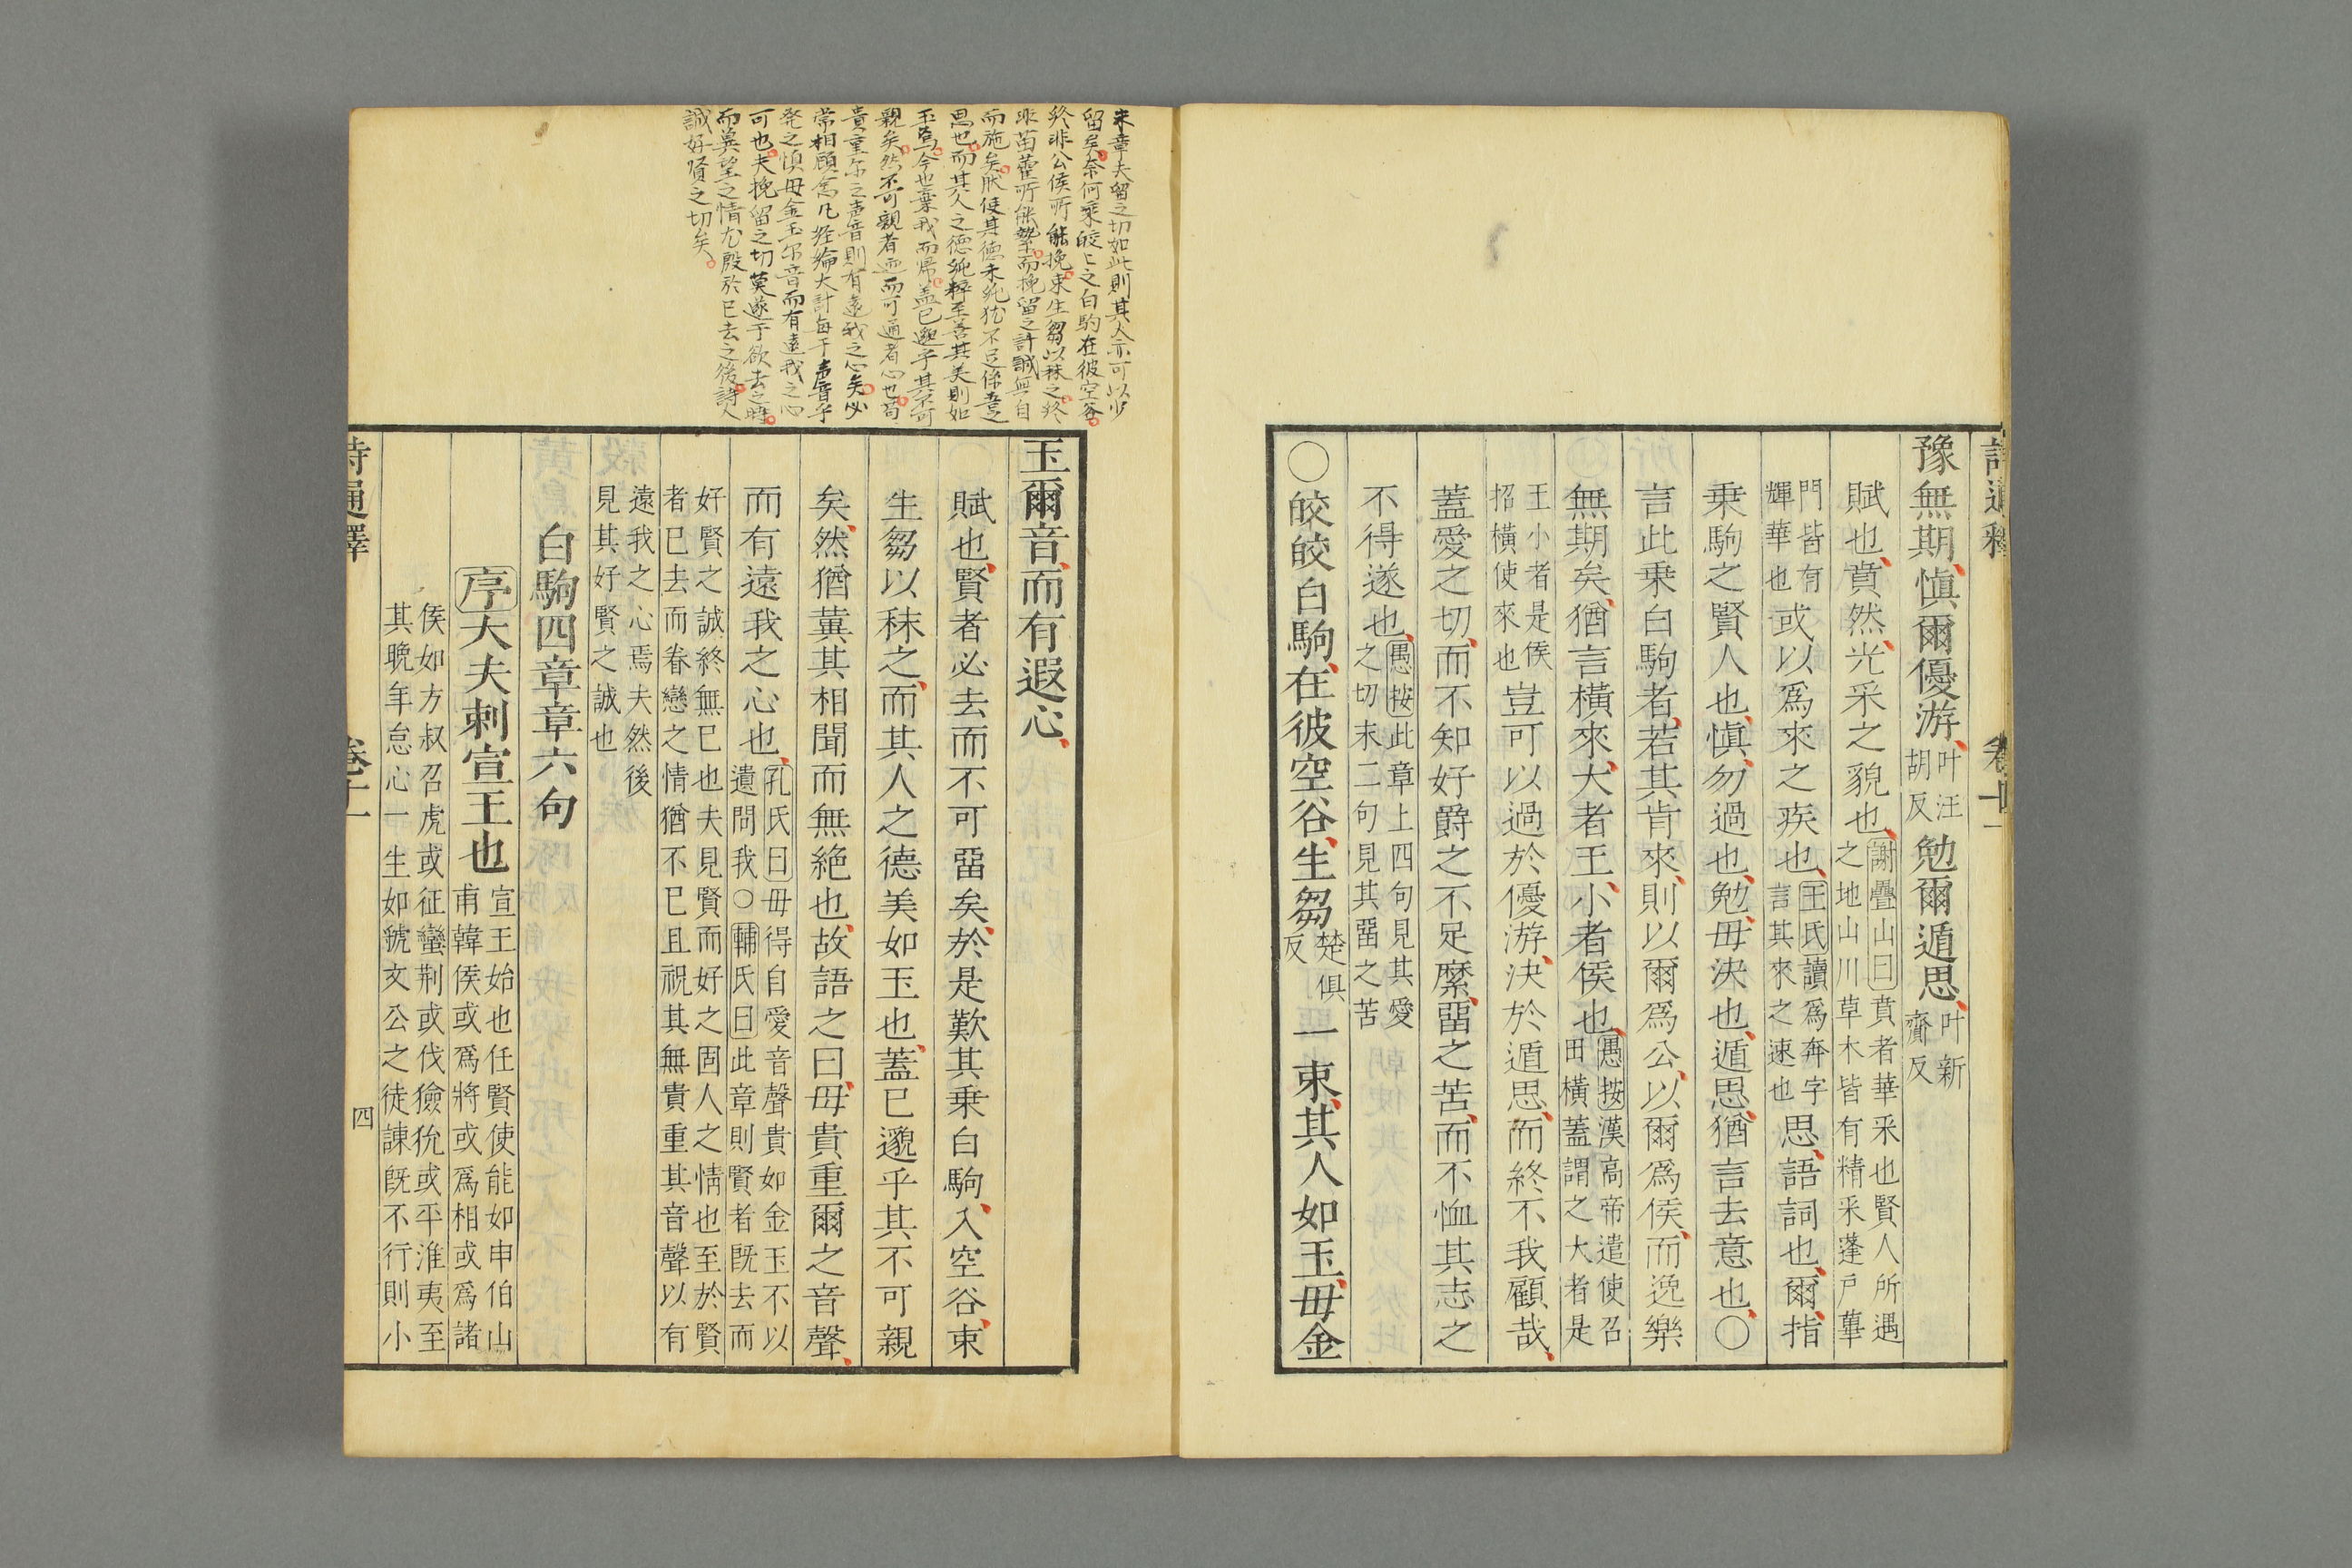 豫無期慎爾優游叶汪胡反勉爾遁思叶新齎反
賦也賁然光采之貌也謝疊山曰賁者華采也賢人所遇之地山川草木皆有精采蓬戶蓽
門皆有輝華也或以爲來之疾也王氏讀爲奔字言其來之速也思語詞也爾指
乗駒之賢人也慎勿過也勉毋決也遁思猶言去意也〇
言此乗白駒者若其肯來則以爾爲公以爾爲侯而逸樂
無期矣猶言橫來大者王小者侯也愚按漢高帝遣使召田橫蓋謂之大者是
王小者是侯招橫使來也豈可以過於優游決於遁思而終不我顧哉
蓋愛之切而不知好爵之不足縻畱之苦而不恤其志之
不得遂也愚按此章上四句見其愛之切末二句見其畱之苦
〇皎皎白駒在彼空谷生芻楚俱反一束其人如玉毋金
末章夫留之切如此則其人亦可以少
留矣奈何乘皎皎之白駒在彼空谷
終非公侯所能挽束生芻以秣之終
非苗藿所能縶而挽留之計誠無自
而施矣
思也而其人之德純粹至善其美則如
玉焉今也棄我而歸蓋已邈乎其不可
親矣然不可親者迹而可通者心也苟
貴重尔之声音則有遠我之心矣必
常相顧念凡經綸大計每于声音乎
発之慎毋金玉尔音而有遠我之心
可也夫挽留之切莫遂于欲去之時
而冀望之情尤殷於已去之後詩人
誠好賢之切矣
玉爾音而有遐心
賦也賢者必去而不可畱矣於是歎其乗白駒入空谷束
生芻以秣之而其人之德美如玉也蓋已邈乎其不可親
矣然猶冀其相聞而無絶也故語之曰毋貴重爾之音聲
而有遠我之心也孔氏曰毋得自愛音聲貴如金玉不以遺問我〇輔氏曰此章則賢者既去而
好賢之誠終無已也夫見賢而好之固人之情也至於賢者已去而眷戀之情猶不已且祝其無貴重其音聲以有
遠我之心焉夫然後見其好賢之誠也
白駒四章章六句
序大夫刺宣王也宣王始也任賢使能如申伯山甫韓侯或爲將或爲相或爲諸
侯如方叔召虎或征蠻荆或伐獫狁或平淮夷至其晩年怠心一生如虢文公之徒諫既不行則小
詩通釋
四